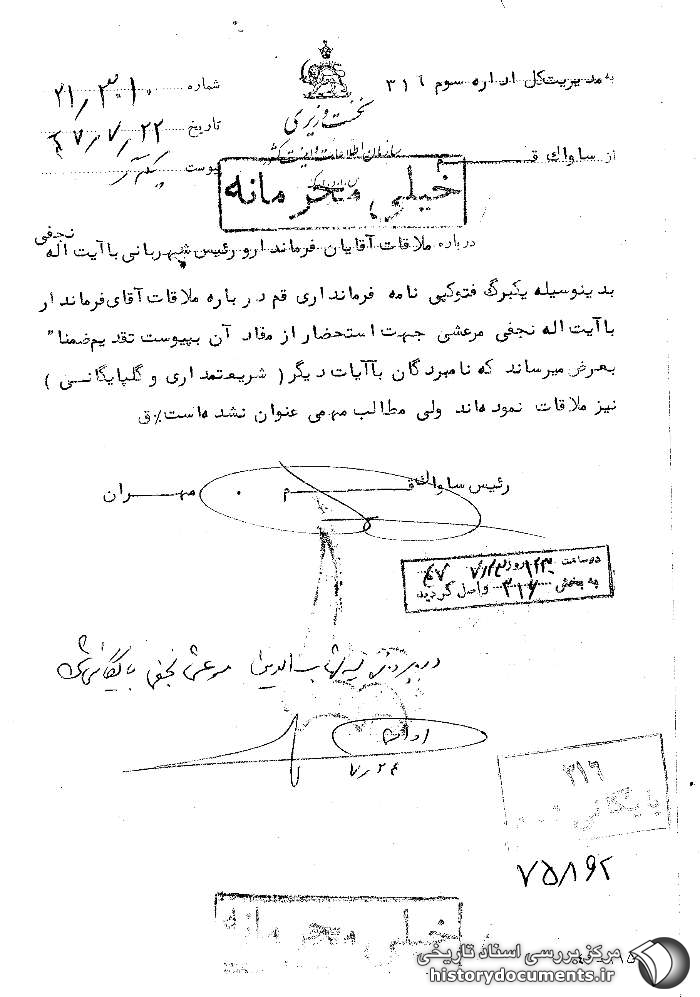 به مدیریت کل اداره سوم ۳۱۶
شماره ۲۱/۳۰۱۰
نخست وزیری
تاریخ ۴۷/۷/۲۲
سازمان اطلاعات و امنیت کشور
از ساواک قم
پیوست
خیلی محرمانه
درباره ملاقات آقایان فرماندار و رئیس شهربانی با آیت اله نجفی
بدینوسیله یکبرگ فتوکپی نامه فرمانداری قم در باره ملاقات آقای فرماندار
با آیت اله نجفی مرعشی جهت استحضار از مفاد آن بپیوست تقدیم ضمنا"
بعرض میرساند که نامبردگان با آیات دیگر ( شریعتمداری و گلپایگانسی )
نیز ملاقات نموده اند ولی مطالب مهمی عنوان نشده است٪ق
رئیس ساواک قم . مهران
در ساعت ۱۲۳۰ روز ۴۷/۷/۲۳
به بخش ۳۱۶ واصل گردید
در پرونده شهاب الدین مرعشی نجفی بایگانی شود
۷/۲۴
۳۱۶
بایگانی
۷۵۸۹۲
خیلی محرمانه
مرکز بررسی اسناد تاریخی
historydocuments.ir